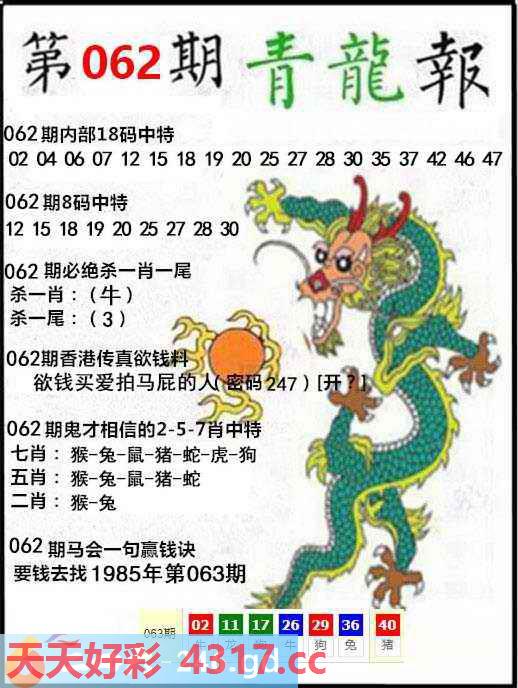 第062期青龍報
062期内部18码中特
02 04 06 07 12 15 18 19 20 25 27 28 30 35 37 42 46 47
062期8码中特
12 15 18 19 20 25 27 28 30
062期必绝杀一肖一尾
杀一肖：（牛）
杀一尾：（3）
062期香港传真欲钱料
欲钱买爱拍马屁的人（密码247）[开？]
062期鬼才相信的2-5-7肖中特
七肖：猴-兔-鼠-猪-蛇-虎-狗
五肖：猴-兔-鼠-猪-蛇
二肖：猴-兔
062期马会一句赢钱诀
要钱去找1985年第063期
063期 02 11 17 26 29 36 40
牛 龙 牛 狗 兔 猪
天天好彩 4317.cc